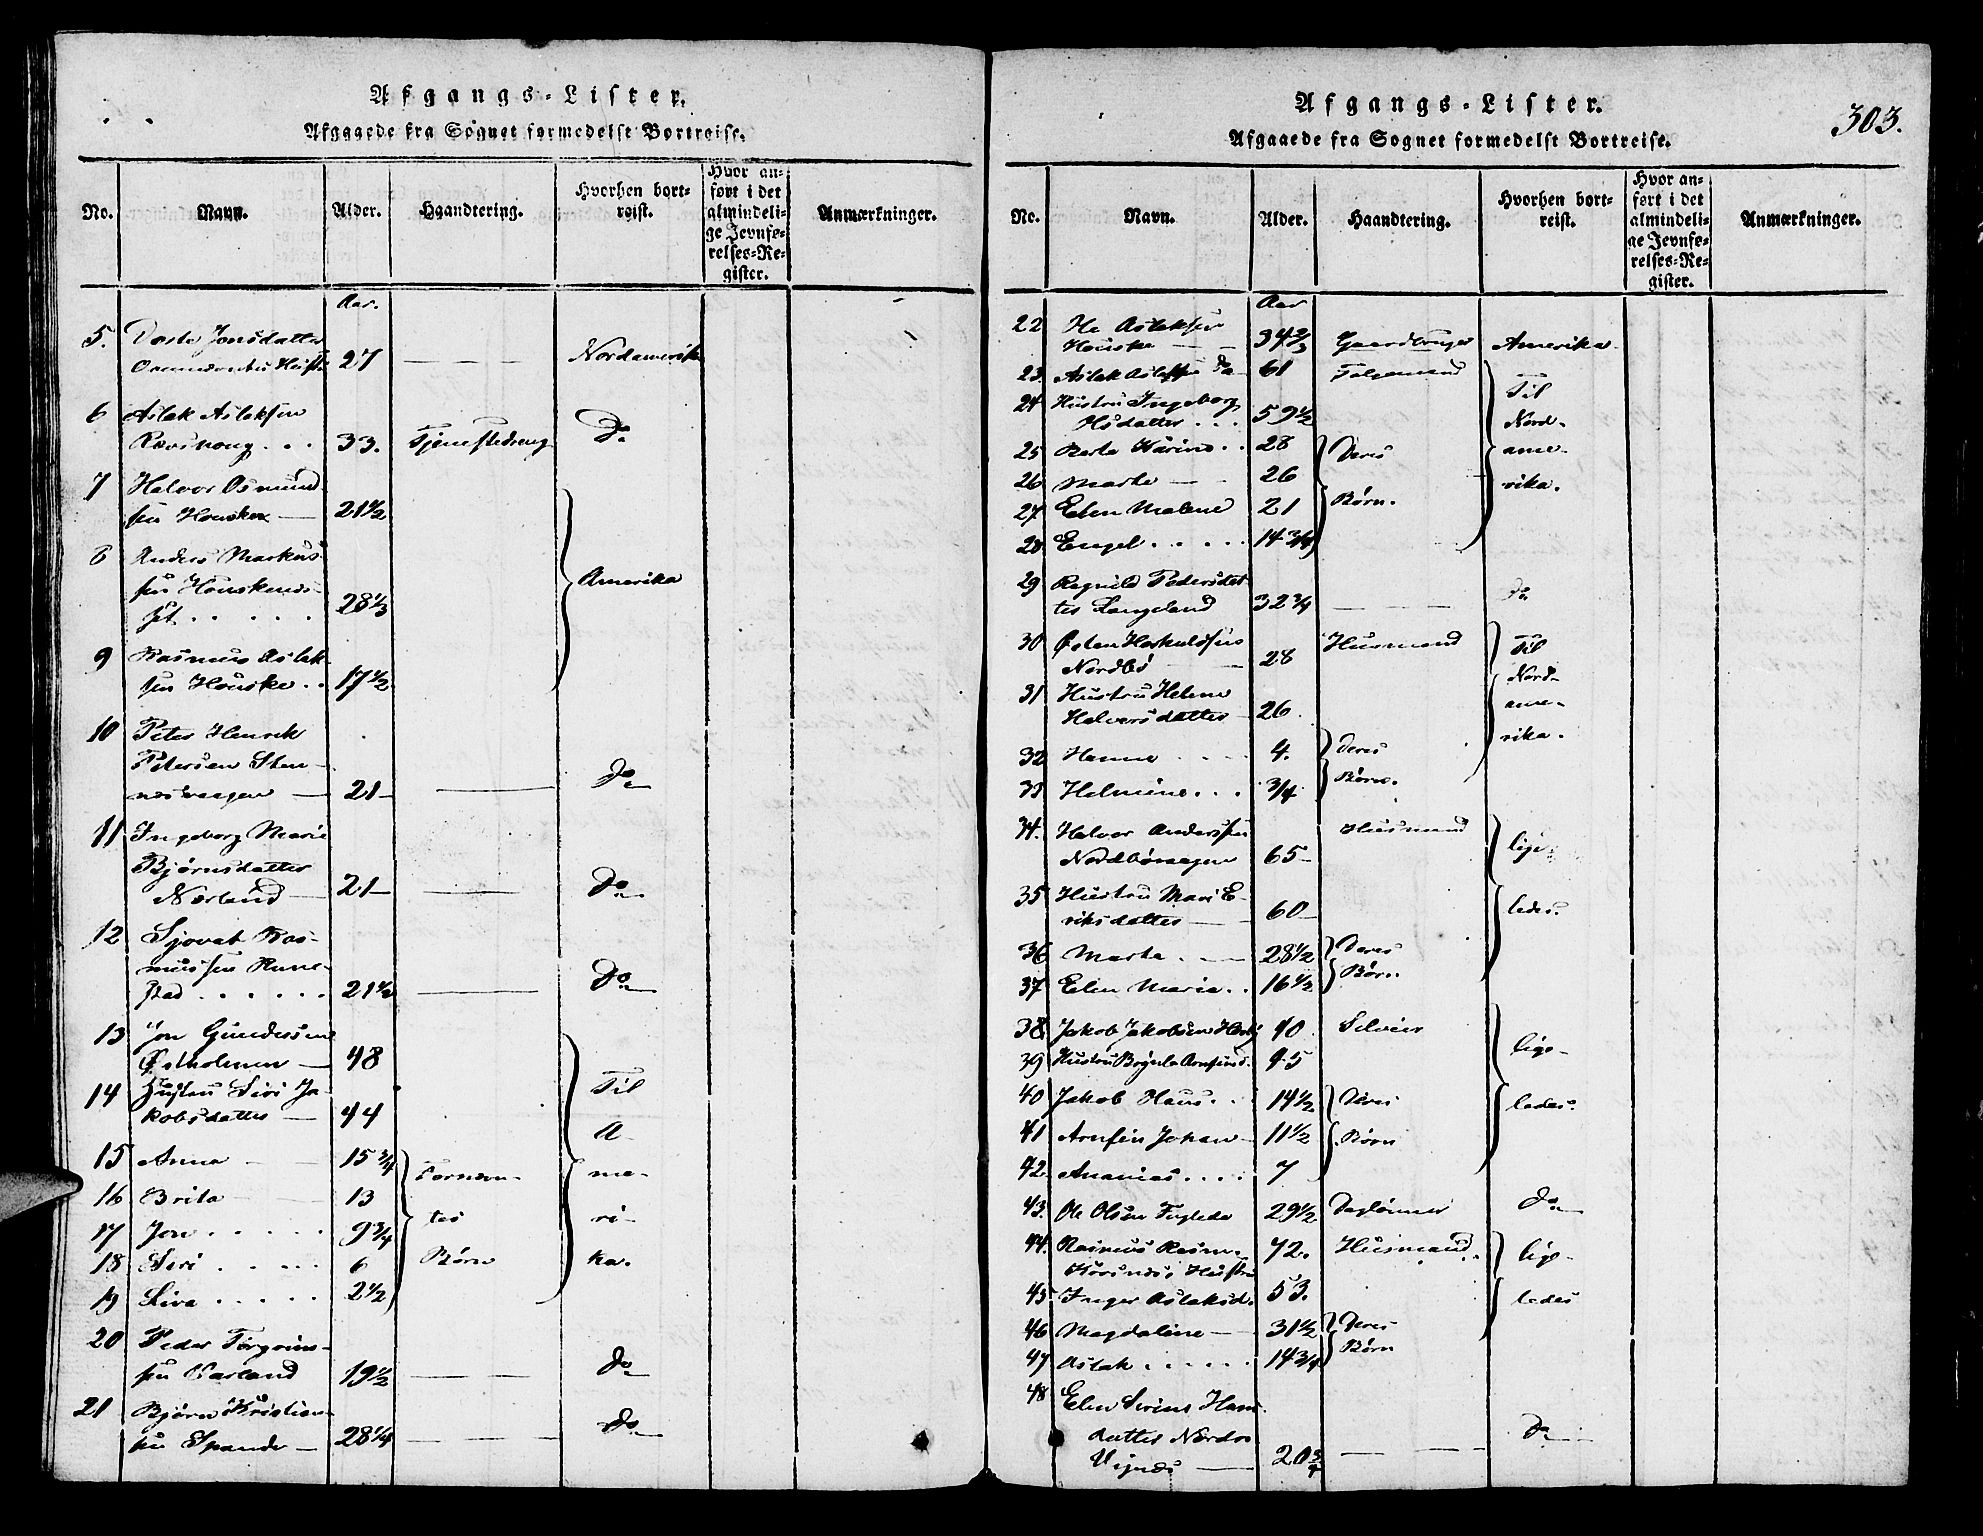 Afgangs-Lister.
Afgaaede fra Sognet formedelst Bortreise.
No. Navn. Alder. Haandtering. Hvorhen bortreist. Hvor anført i det almindelige Jevnførelses-Register. Anmærkninger.
Aar.
5. Jonsdatter
27 — Nordamerika
6 Aslak Aslaksen
33. Tjenestedreng Do
7 Halvor Osmund-
sen Houske — 21 1/2
8 Anders Markus-
sen
28 1/3 Amerika
9 Rasmus Aslak-
sen Houske . . 17 1/2
10 Peter Henrik
Petersen Sten-
nesvaagen — 21 — Do
11 Ingeborg Marie
Bjørnsdatter
Nærland — 21 — Do
12 Sjovat Ras-
mussen Rene-
stad . . . . . . 21 1/2 — Do
13 Jon Gundersen
Østholmen — 48
14 Hustru Siri Ja-
kobsdatter — 44
Til
A-
15 Anna — 15 3/4
Fornævn- me-
16 Brita 13
tes ri-
17 Jon . . . . . 9 3/4
18 Siri . . . . . 6 Børn ka.
19 Siva . . . . . 2 1/2
20 Peder Torgrims-
sen Varland 19 1/2 — Do
21 Bjørn Kristian-
sen Spande — 28 1/4 — Do
Afgangs-Lister.
303.
Afgaaede fra Sognet formedelst Bortreise.
No. Navn. Alder. Haandtering. Hvorhen bortreist. Hvor anført i det almindelige Jevnførelses-Register. Anmærkninger.
Aar
22 Aslaksen
Houske — 34 2/3 Gaardbruger Amerika
23. Aslak Do 61
Til
24 Hustru Ingeborg
Nord-
59 1/2
25 Berta Karine . . 28 Deres ame-
26 Marte — 26 rika.
27 Elen Malene 21 Børn.
28 Engel . . . . . 14 3/4
29 Ragnild Pedersdat-
ter Langeland 32 3/4 — Do
30 Østen Herkuldsen Husmand Til
Nordbø 28 Nord-
31 Hustru Helene
Halvorsdatter 26. ame-
rika.
32 Hanne . . . . 4. Deres
33 Helmine . . . 3/4 Børn.
34. Halvor Anderssen Husmand
65 — lige-
35 Hustru Mari E-
riksdatter — 60 — ledes.
36 Marta . — 28 1/2 Deres
37 Elen Maria . . 16 1/2 Børn
38. Jakob Jakobsen 40 Selveier
39 Hustru 45 lige-
40 Jakob Hans . . 14 1/2 Deres ledes.
41 Arnfin Johan — 11 1/2 Børn
42. Ananias . . . . 7
43. Ole Olsen 29 1/2 Daglønner Do
44. Rasmus Rasm. 72. Husmand lige-
Hustru
45 Inger Aslaksd. 53. ledes
46 Magdalene — 31 1/2 Deres
47 Aslak . . . . . 14 3/4 Børn
48 Elen Serine Hans-
datter
20 3/4 — Do